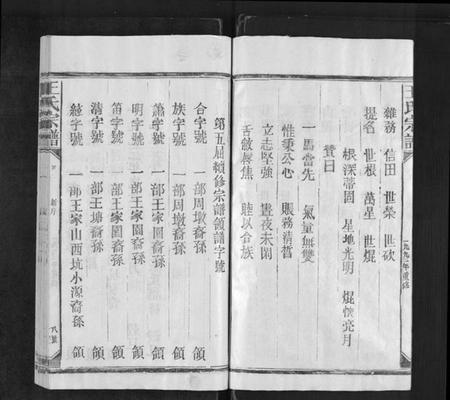 王氏宗譜
一九九一年重修
雜務 信田 世榮 世欽
提名 世根 萬星 世焜
根深蒂固 星地光明 焜懷亮月
贊曰
一馬當先 氣量無雙
惟秉公心 賬務清晳
立志堅強 晝夜未閑
舌敝唇焦 睦以合族
第五屆續修宗譜領譜字號
合字號 一部周墩裔孫 領
族字號 一部周墩裔孫 領
蕭字號 一部王家園裔孫 領
明字號 一部王家園裔孫 領
笛字號 一部王家園裔孫 領
清字號 一部王塘裔孫 領
一部王家山西坑小源裔孫 領
王氏宗譜